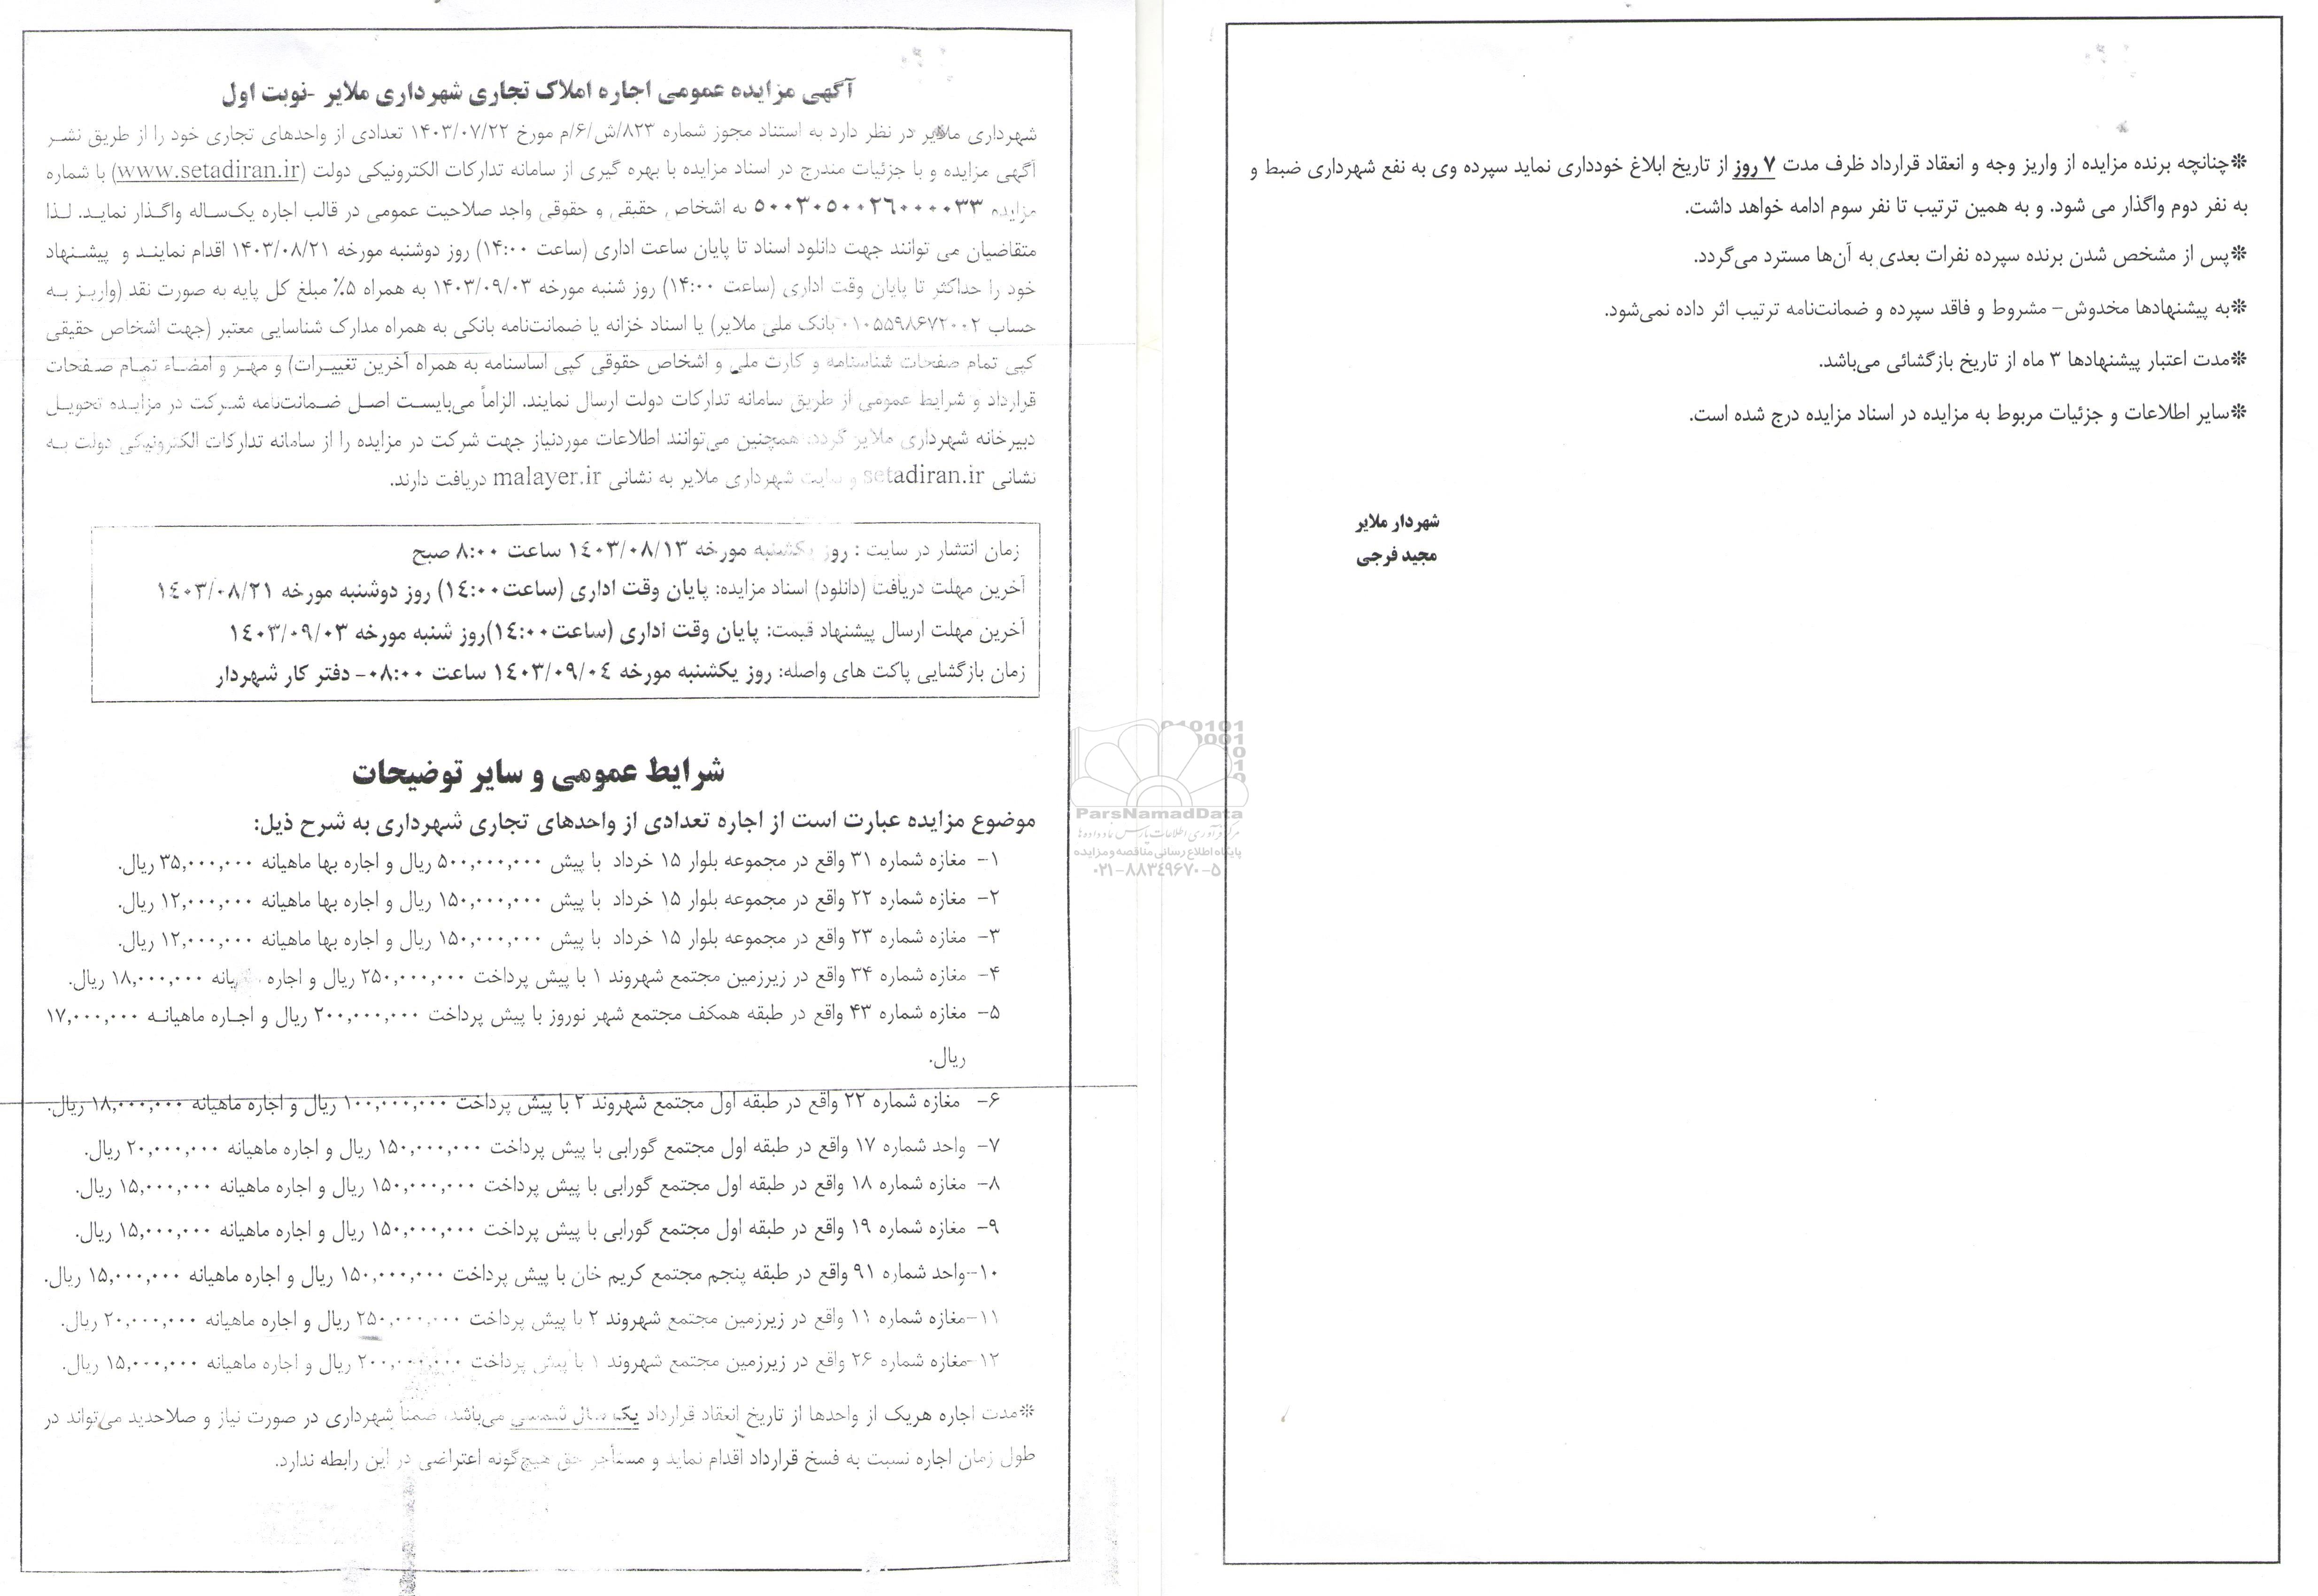 آگهی مزایده عمومی اجاره املاک تجاری شهرداری ملایر -نوبت اول
شهرداری ملایر در نظر دارد به استناد مجوز شماره ۸۲۳/ش/۶/م مورخ ۱۴۰۳/۰۷/۲۲ تعدادی از واحدهای تجاری خود را از طریق نشر
آگهی مزایده و با جزئیات مندرج در اسناد مزایده با بهره گیری از سامانه تدارکات الکترونیکی دولت (www.setadiran.ir) با شماره
مزایده ۵۰۰۳۰۵۰۰۲۶۰۰۰۰۳۳ به اشخاص حقیقی و حقوقی واجد صلاحیت عمومی در قالب اجاره یک‌ساله واگذار نماید. لذا
متقاضیان می توانند جهت دانلود اسناد تا پایان ساعت اداری (ساعت ۱۴:۰۰) روز دوشنبه مورخه ۱۴۰۳/۰۸/۲۱ اقدام نمایند و پیشنهاد
خود را حداکثر تا پایان وقت اداری (ساعت ۱۴:۰۰) روز شنبه مورخه ۱۴۰۳/۰۹/۰۳ به همراه ۵٪ مبلغ کل پایه به صورت نقد (واریز به
حساب ۰۱۰۵۵۹۸۶۷۲۰۰۲ بانک ملی ملایر) یا اسناد خزانه یا ضمانت‌نامه بانکی به همراه مدارک شناسایی معتبر (جهت اشخاص حقیقی
کپی تمام صفحات شناسنامه و کارت ملی و اشخاص حقوقی کپی اساسنامه به همراه آخرین تغییرات) و مهر و امضاء تمام صفحات
قرارداد و شرایط عمومی از طریق سامانه تدارکات دولت ارسال نمایند. الزاماً می‌بایست اصل ضمانت‌نامه شرکت در مزایده تحویل
دبیرخانه شهرداری ملایر گردد. همچنین می‌توانند اطلاعات موردنیاز جهت شرکت در مزایده را از سامانه تدارکات الکترونیکی دولت به
نشانی setadiran.ir و سایت شهرداری ملایر به نشانی malayer.ir دریافت دارند.
زمان انتشار در سایت : روز یکشنبه مورخه ۱٤۰۳/۰۸/۱۳ ساعت ۸:۰۰ صبح
آخرین مهلت دریافت (دانلود) اسناد مزایده: پایان وقت اداری (ساعت۱٤:۰۰) روز دوشنبه مورخه ۱٤۰۳/۰۸/۲۱
آخرین مهلت ارسال پیشنهاد قیمت: پایان وقت اداری (ساعت۱٤:۰۰)روز شنبه مورخه ۱٤۰۳/۰۹/۰۳
زمان بازگشایی پاکت های واصله: روز یکشنبه مورخه ۱٤۰۳/۰۹/۰٤ ساعت ۰۸:۰۰- دفتر کار شهردار
شرایط عمومی و سایر توضیحات
موضوع مزایده عبارت است از اجاره تعدادی از واحدهای تجاری شهرداری به شرح ذیل:
۱- مغازه شماره ۳۱ واقع در مجموعه بلوار ۱۵ خرداد با پیش ۵۰۰,۰۰۰,۰۰۰ ریال و اجاره بها ماهیانه ۳۵,۰۰۰,۰۰۰ ریال.
۲- مغازه شماره ۲۲ واقع در مجموعه بلوار ۱۵ خرداد با پیش ۱۵۰,۰۰۰,۰۰۰ ریال و اجاره بها ماهیانه ۱۲,۰۰۰,۰۰۰ ریال.
۳- مغازه شماره ۲۳ واقع در مجموعه بلوار ۱۵ خرداد با پیش ۱۵۰,۰۰۰,۰۰۰ ریال و اجاره بها ماهیانه ۱۲,۰۰۰,۰۰۰ ریال.
۴- مغازه شماره ۳۴ واقع در زیرزمین مجتمع شهروند ۱ با پیش پرداخت ۲۵۰,۰۰۰,۰۰۰ ریال و اجاره ماهیانه ۱۸,۰۰۰,۰۰۰ ریال.
۵- مغازه شماره ۴۳ واقع در طبقه همکف مجتمع شهر نوروز با پیش پرداخت ۲۰۰,۰۰۰,۰۰۰ ریال و اجاره ماهیانه ۱۷,۰۰۰,۰۰۰
ریال.
۶- مغازه شماره ۲۲ واقع در طبقه اول مجتمع شهروند ۲ با پیش پرداخت ۱۰۰,۰۰۰,۰۰۰ ریال و اجاره ماهیانه ۱۸,۰۰۰,۰۰۰ ریال.
۷- واحد شماره ۱۷ واقع در طبقه اول مجتمع گورابی با پیش پرداخت ۱۵۰,۰۰۰,۰۰۰ ریال و اجاره ماهیانه ۲۰,۰۰۰,۰۰۰ ریال.
۸- مغازه شماره ۱۸ واقع در طبقه اول مجتمع گورابی با پیش پرداخت ۱۵۰,۰۰۰,۰۰۰ ریال و اجاره ماهیانه ۱۵,۰۰۰,۰۰۰ ریال.
۹- مغازه شماره ۱۹ واقع در طبقه اول مجتمع گورابی با پیش پرداخت ۱۵۰,۰۰۰,۰۰۰ ریال و اجاره ماهیانه ۱۵,۰۰۰,۰۰۰ ریال.
۱۰-واحد شماره ۹۱ واقع در طبقه پنجم مجتمع کریم خان با پیش پرداخت ۱۵۰,۰۰۰,۰۰۰ ریال و اجاره ماهیانه ۱۵,۰۰۰,۰۰۰ ریال.
۱۱-مغازه شماره ۱۱ واقع در زیرزمین مجتمع شهروند ۲ با پیش پرداخت ۲۵۰,۰۰۰,۰۰۰ ریال و اجاره ماهیانه ۲۰,۰۰۰,۰۰۰ ریال.
۱۲-مغازه شماره ۲۶ واقع در زیرزمین مجتمع شهروند ۱ با پیش پرداخت ۲۰۰,۰۰۰,۰۰۰ ریال و اجاره ماهیانه ۱۵,۰۰۰,۰۰۰ ریال.
❊مدت اجاره هریک از واحدها از تاریخ انعقاد قرارداد یک سال شمسی می‌باشد، ضمناً شهرداری در صورت نیاز و صلاحدید می‌تواند در
طول زمان اجاره نسبت به فسخ قرارداد اقدام نماید و مستأجر حق هیچ‌گونه اعتراضی در این رابطه ندارد.
❊چنانچه برنده مزایده از واریز وجه و انعقاد قرارداد ظرف مدت ۷ روز از تاریخ ابلاغ خودداری نماید سپرده وی به نفع شهرداری ضبط و
به نفر دوم واگذار می شود. و به همین ترتیب تا نفر سوم ادامه خواهد داشت.
❊پس از مشخص شدن برنده سپرده نفرات بعدی به آن‌ها مسترد می‌گردد.
❊به پیشنهادها مخدوش- مشروط و فاقد سپرده و ضمانت‌نامه ترتیب اثر داده نمی‌شود.
❊مدت اعتبار پیشنهادها ۳ ماه از تاریخ بازگشائی می‌باشد.
❊سایر اطلاعات و جزئیات مربوط به مزایده در اسناد مزایده درج شده است.
شهردار ملایر
مجید فرجی
ParsNamadData
مرکز فرآوری اطلاعات پارس نماد داده‌ها
پایگاه اطلاع رسانی مناقصه و مزایده
۰۲۱-۸۸۳٤۹۶۷۰-۵